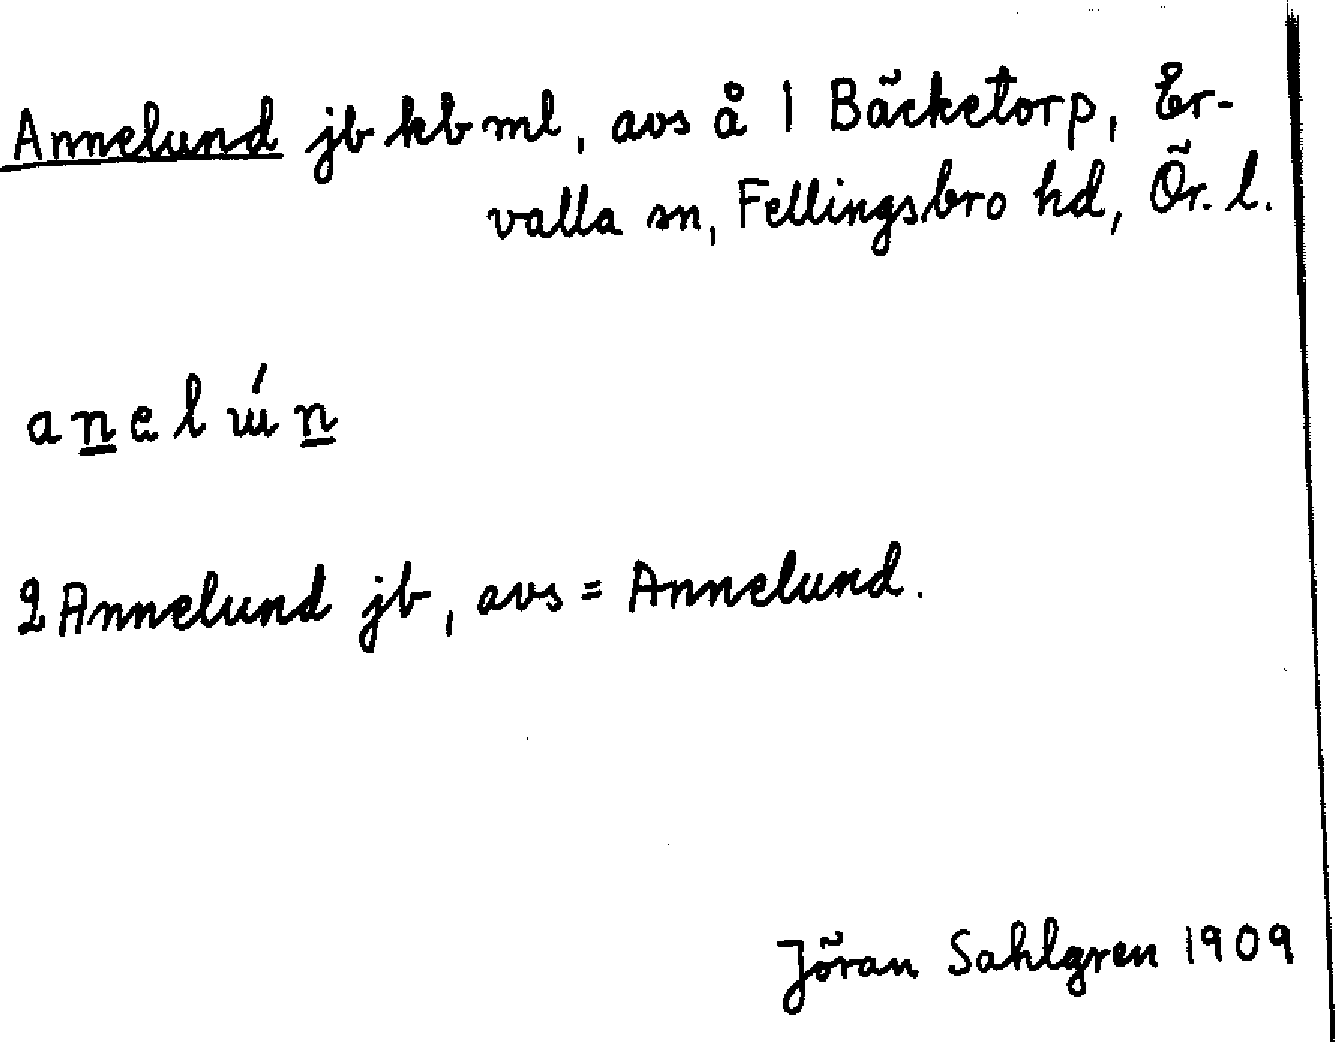 Annelund jb kb ml, avs å 1 Bäcketorp, Er-
valla sn, Fellingsbro hd, Ör. l.
a n e l ɯ́ n
2 Annelund jb, avs = Annelund.
Jöran Sahlgren 1909